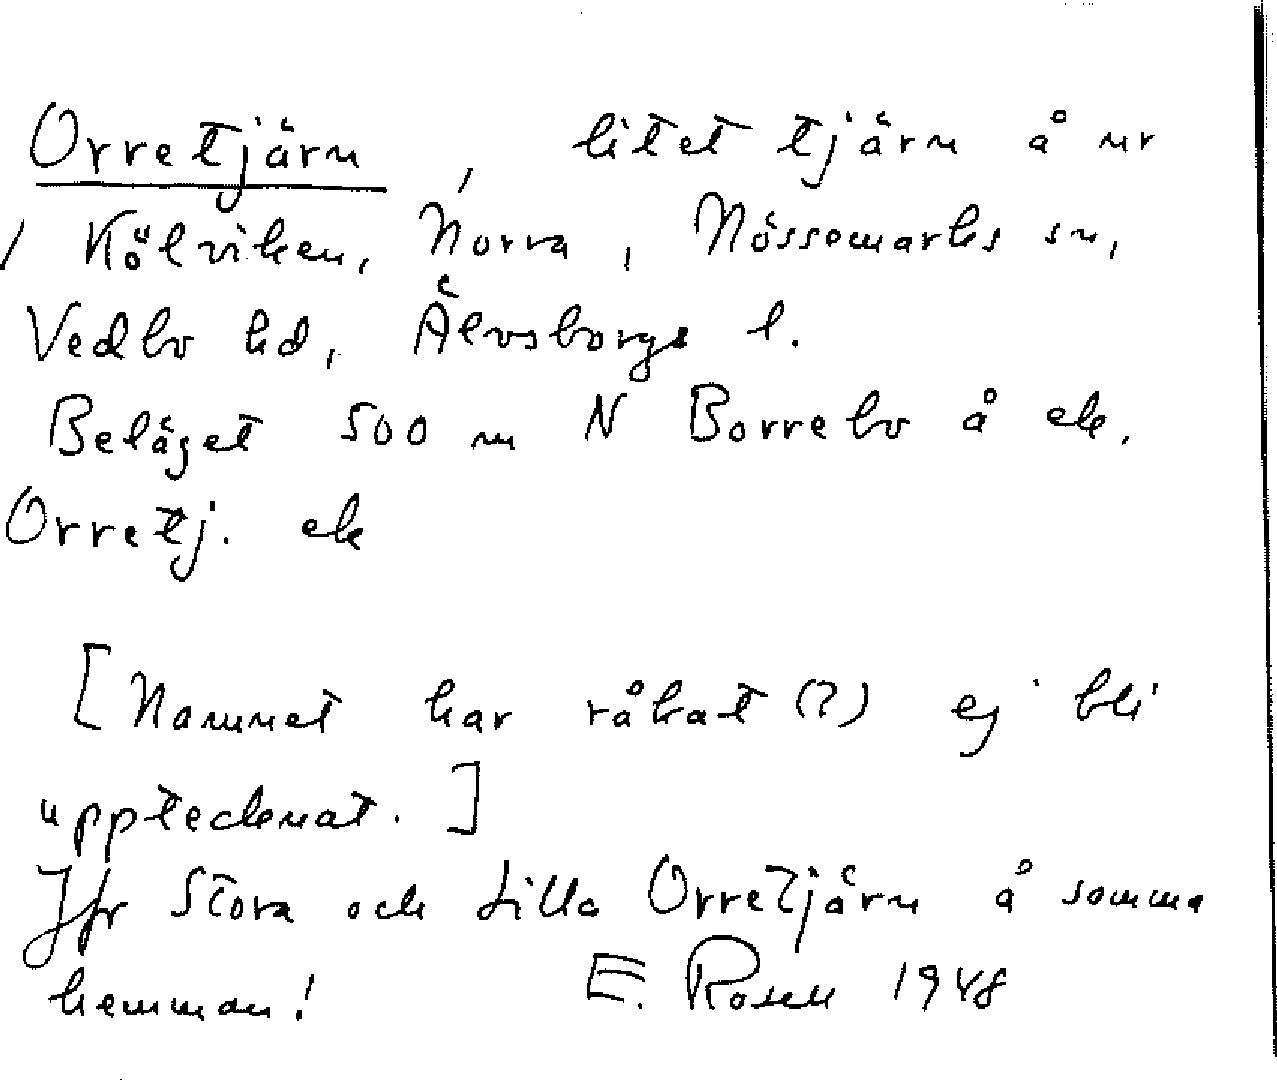 Orretjärn, litet tjärn å nr
1 Kölviken, Norra, Nössemarks sn,
Vedbo hd, Älvsborgs l.
Beläget 500 m N Borrebo å ek.
Orretj. ek
[Namnet har råkat (?) ej bli
upptecknat.]
Jfr Stora och Lilla Orretjärn å samma
hemman! E. Rosen 1948